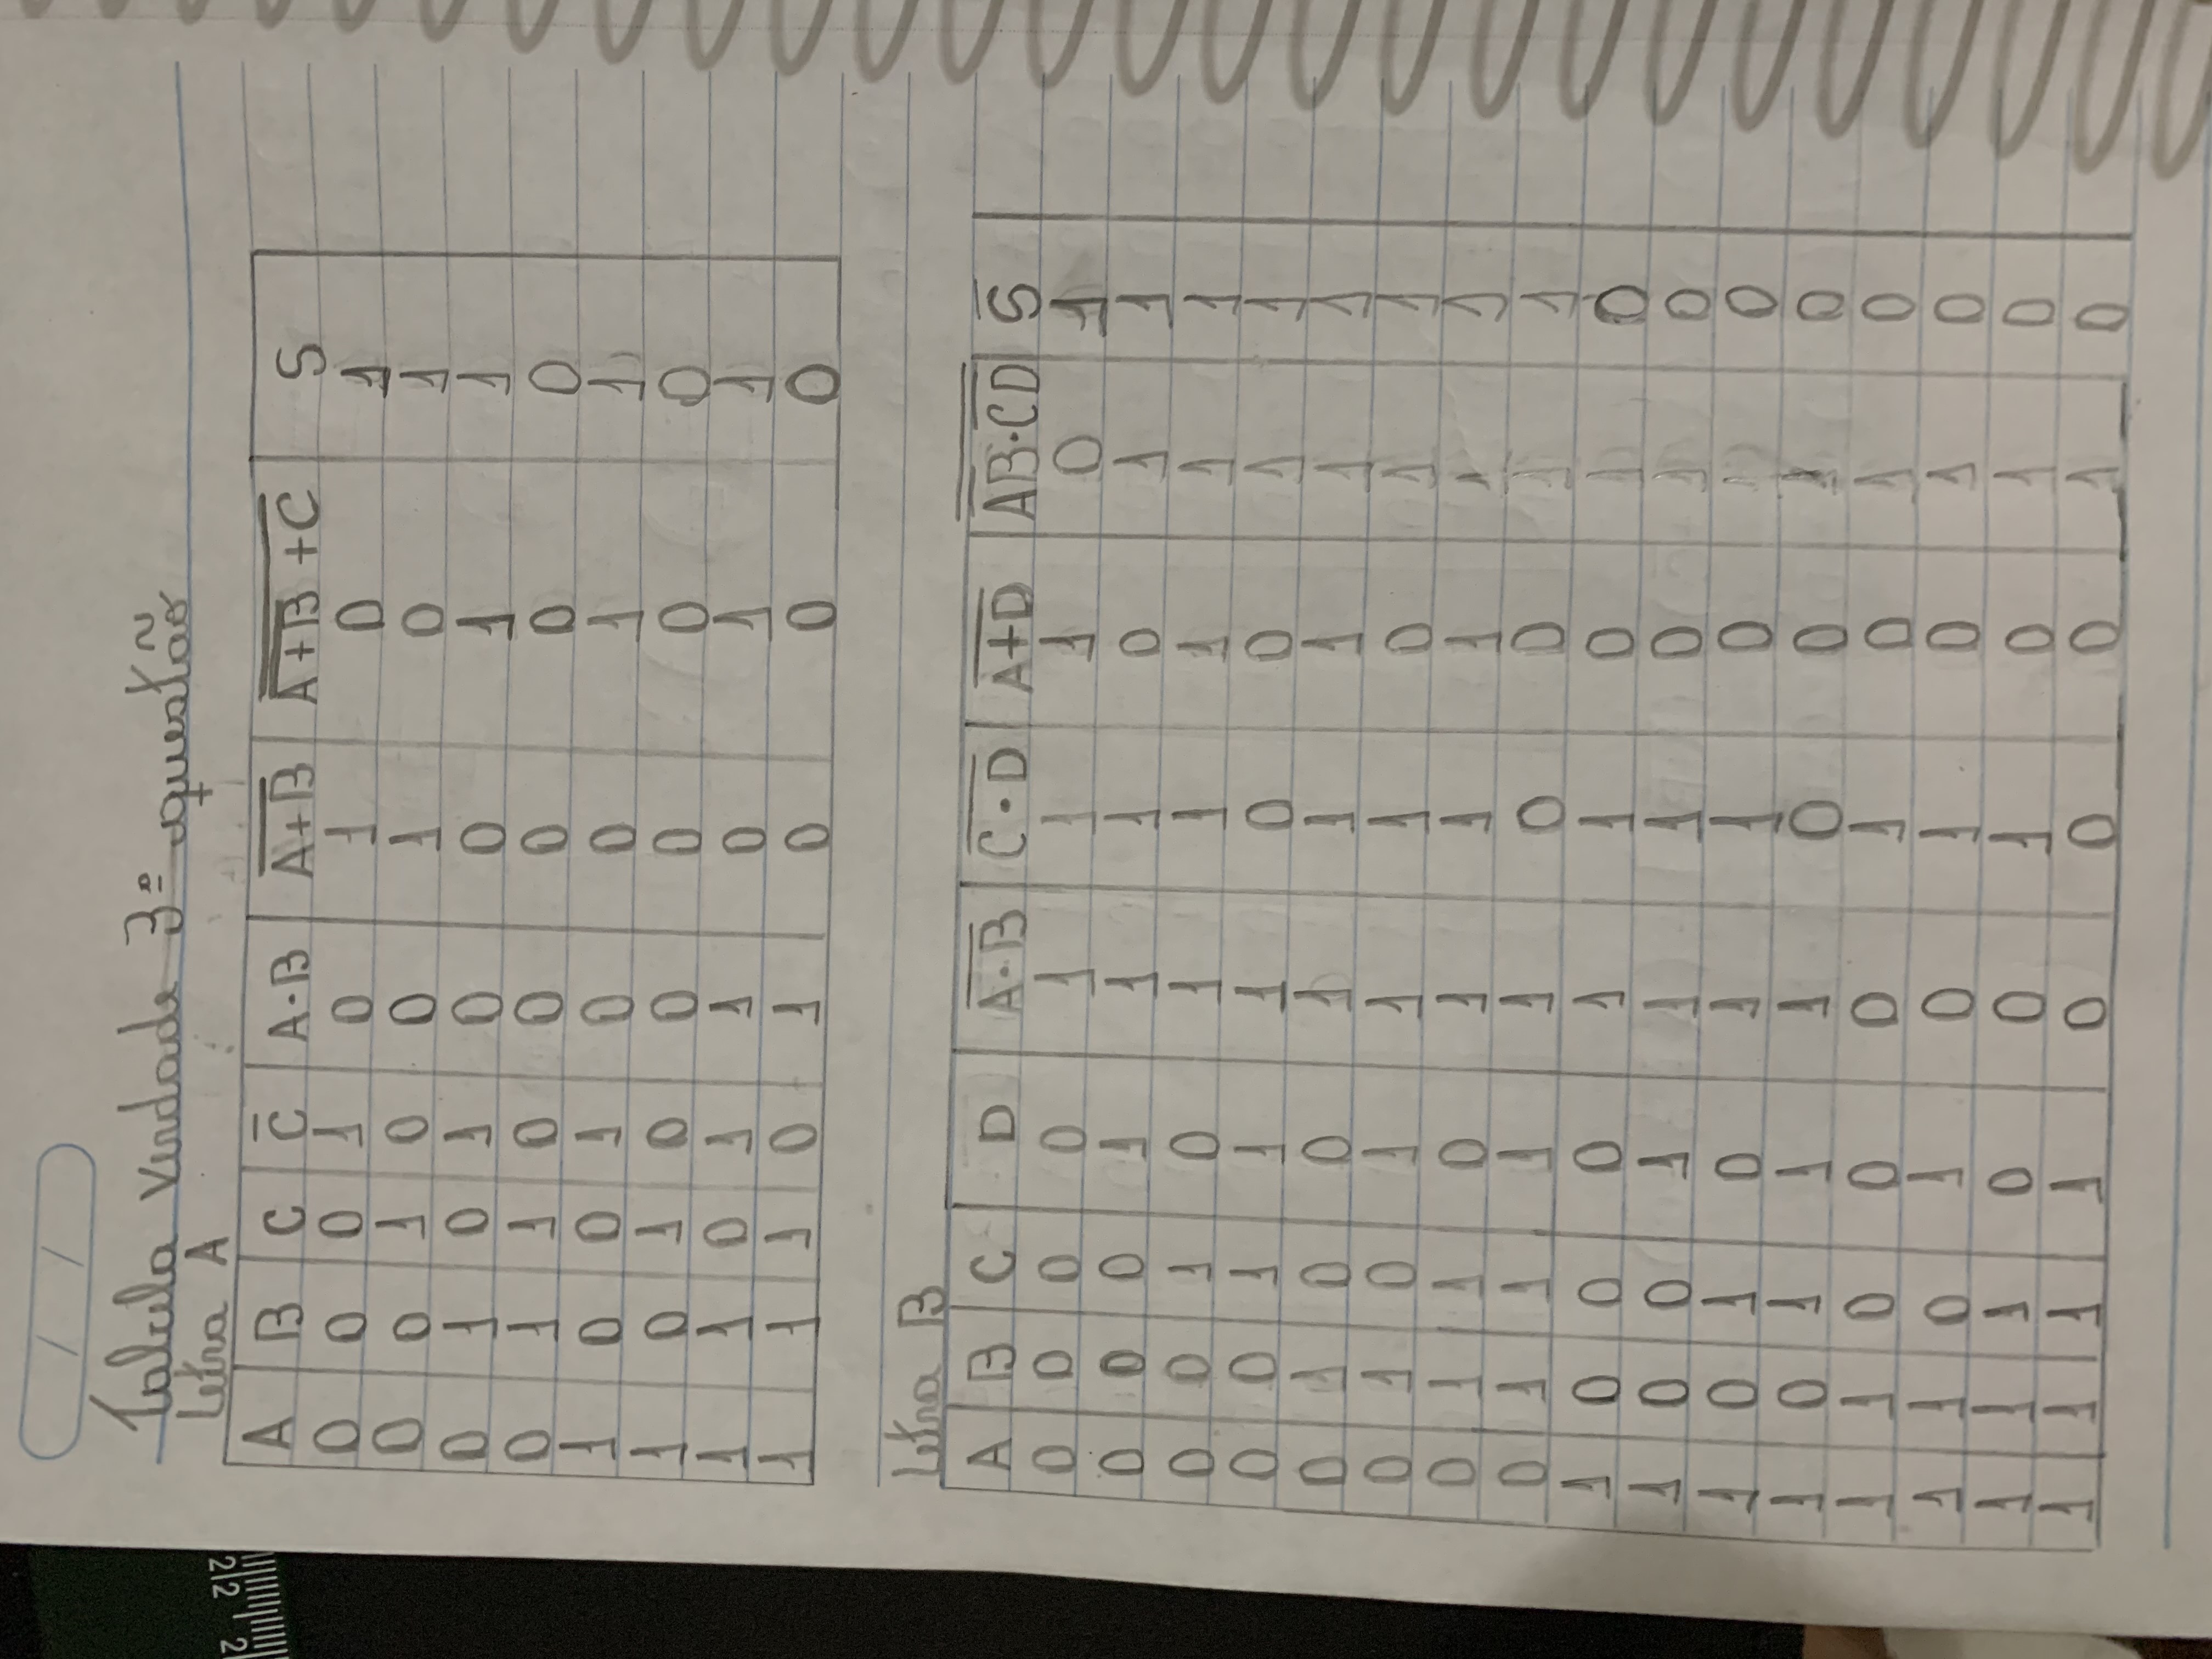 Tabela Verdade 3º questão
Letra A
A B C C̅ A·B A̅+̅B̅ A̅+̅B̅ ̅+̅C̅ S
0 0 0 1 0 1 0 1
0 0 1 0 0 1 0 1
0 1 0 1 0 0 1 1
0 1 1 0 0 0 0 0
1 0 0 1 0 0 1 1
1 0 1 0 0 0 0 0
1 1 0 1 1 0 1 1
1 1 1 0 1 0 0 0
Letra B
A B C D A̅·̅B̅ C̅·̅D̅ A̅+̅D̅ A̅B̅·̅C̅D̅ S̅
0 0 0 0 1 1 1 0 1
0 0 0 1 1 1 0 1 1
0 0 1 0 1 1 1 1 1
0 0 1 1 1 0 0 1 1
0 1 0 0 1 1 1 1 1
0 1 0 1 1 1 0 1 1
0 1 1 0 1 1 1 1 1
0 1 1 1 1 0 0 1 1
1 0 0 0 1 1 0 1 0
1 0 0 1 1 1 0 1 0
1 0 1 0 1 1 0 0
1 0 1 1 1 0 0 1 0
1 1 0 0 0 1 0 1 0
1 1 0 1 0 1 0 1 0
1 1 1 0 0 1 0 1 0
1 1 1 1 0 0 0 1 0